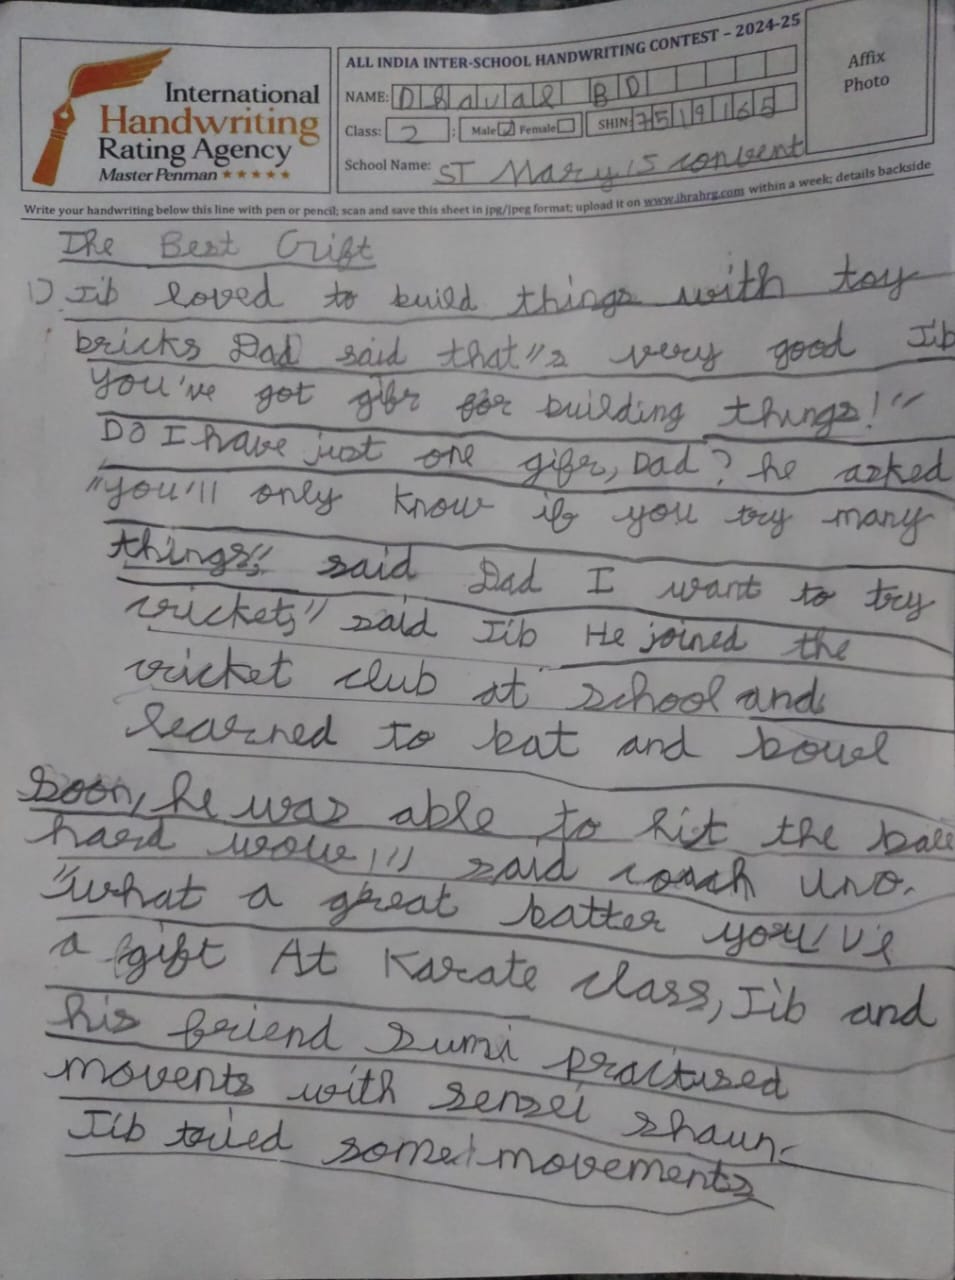 International
Handwriting
Rating Agency
Master Penman ★★★★★
ALL INDIA INTER-SCHOOL HANDWRITING CONTEST – 2024-25
NAME: Dhaval BD
Class: 2 ; Male ☑ Female ☐ SHIN: 7519165
School Name: ST Mary's convent
Affix
Photo
Write your handwriting below this line with pen or pencil; scan and save this sheet in jpg/jpeg format; upload it on www.ihrahrg.com within a week; details backside
The Best Grift
1) Jib loved to build things with toy
bricks Dad said that"s very good Jib
You've got gifr for building things!"
Do I have just one gifr, Dad? he asked
"you'll only know if you try many
things," said Dad I want to try
cricket," said Jib He joined the
cricket club at school and
learned to bat and boul
Soon, he was able to hit the ball
hard wow!" said coach Uno.
"what a great batter you've
a gift At Karate class, Jib and
his friend Sumi practised
movents with sensei shaun
Jib tried some movements